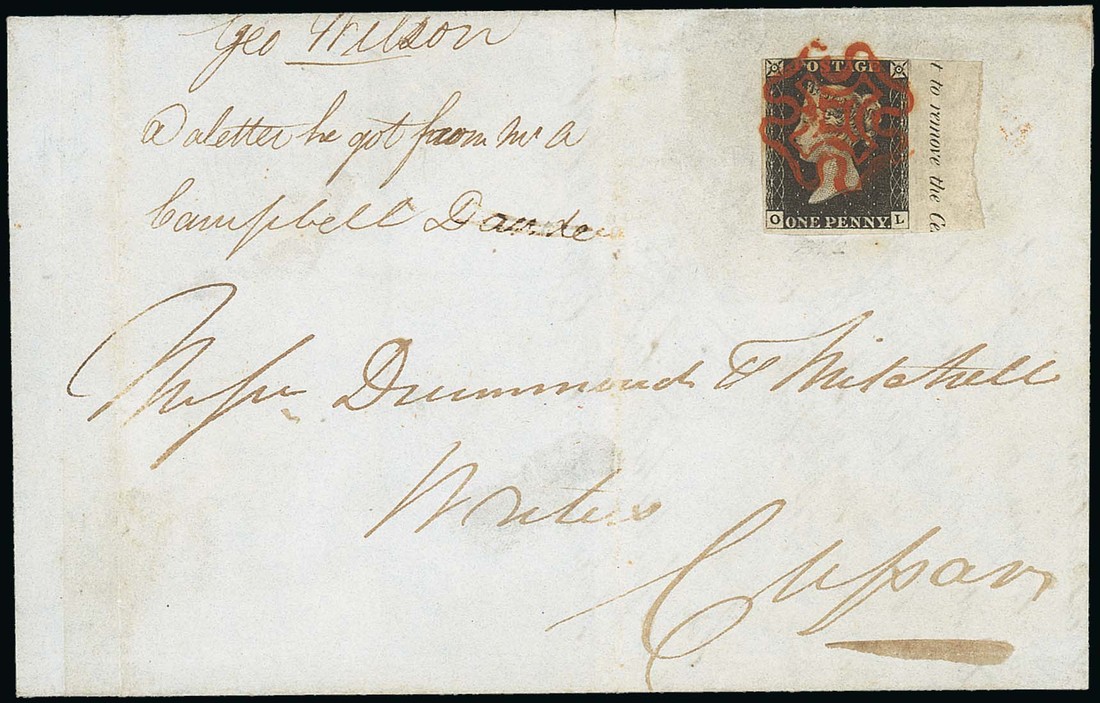 Geo Wilson
a letter he got from Mr A
Campbell
POSTAGE
t to remove the Ce
O ONE PENNY. L
Messrs Drummond & Mitchell
Writers
Cupar